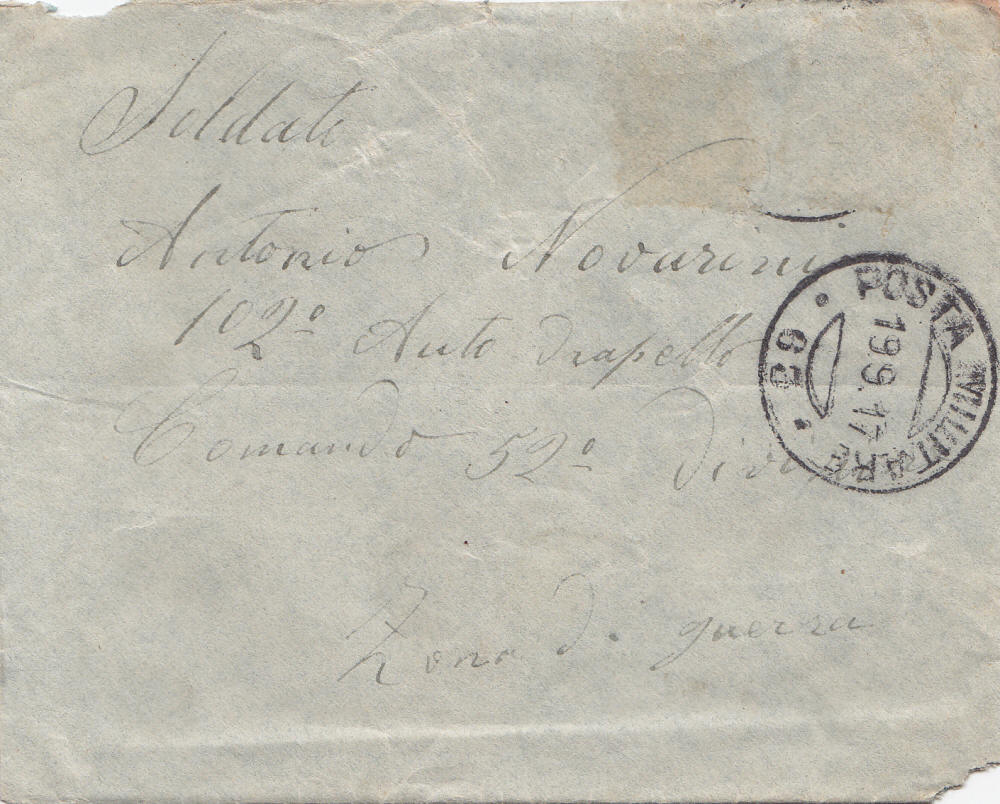 Soldato
Antonio Novarini
102º Auto drapello
Comando 52º divi
Zona di guerra
POSTA MILITARE
19.9.17
63